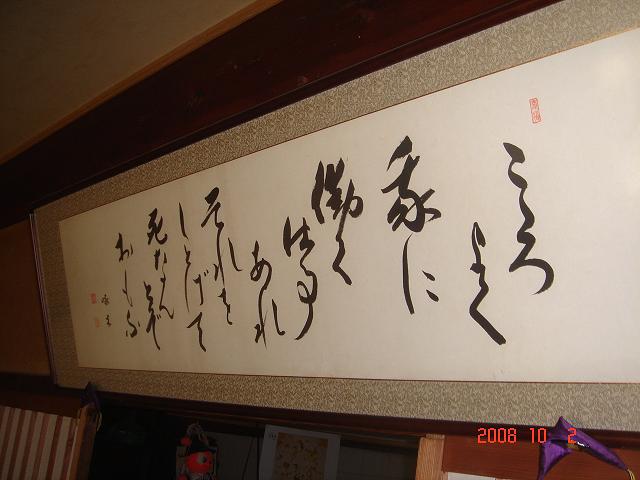 こゝろ
よく
我に
働く
仕事
あれ
それを
しとげて
死なんと
おもふ
2008 10 2